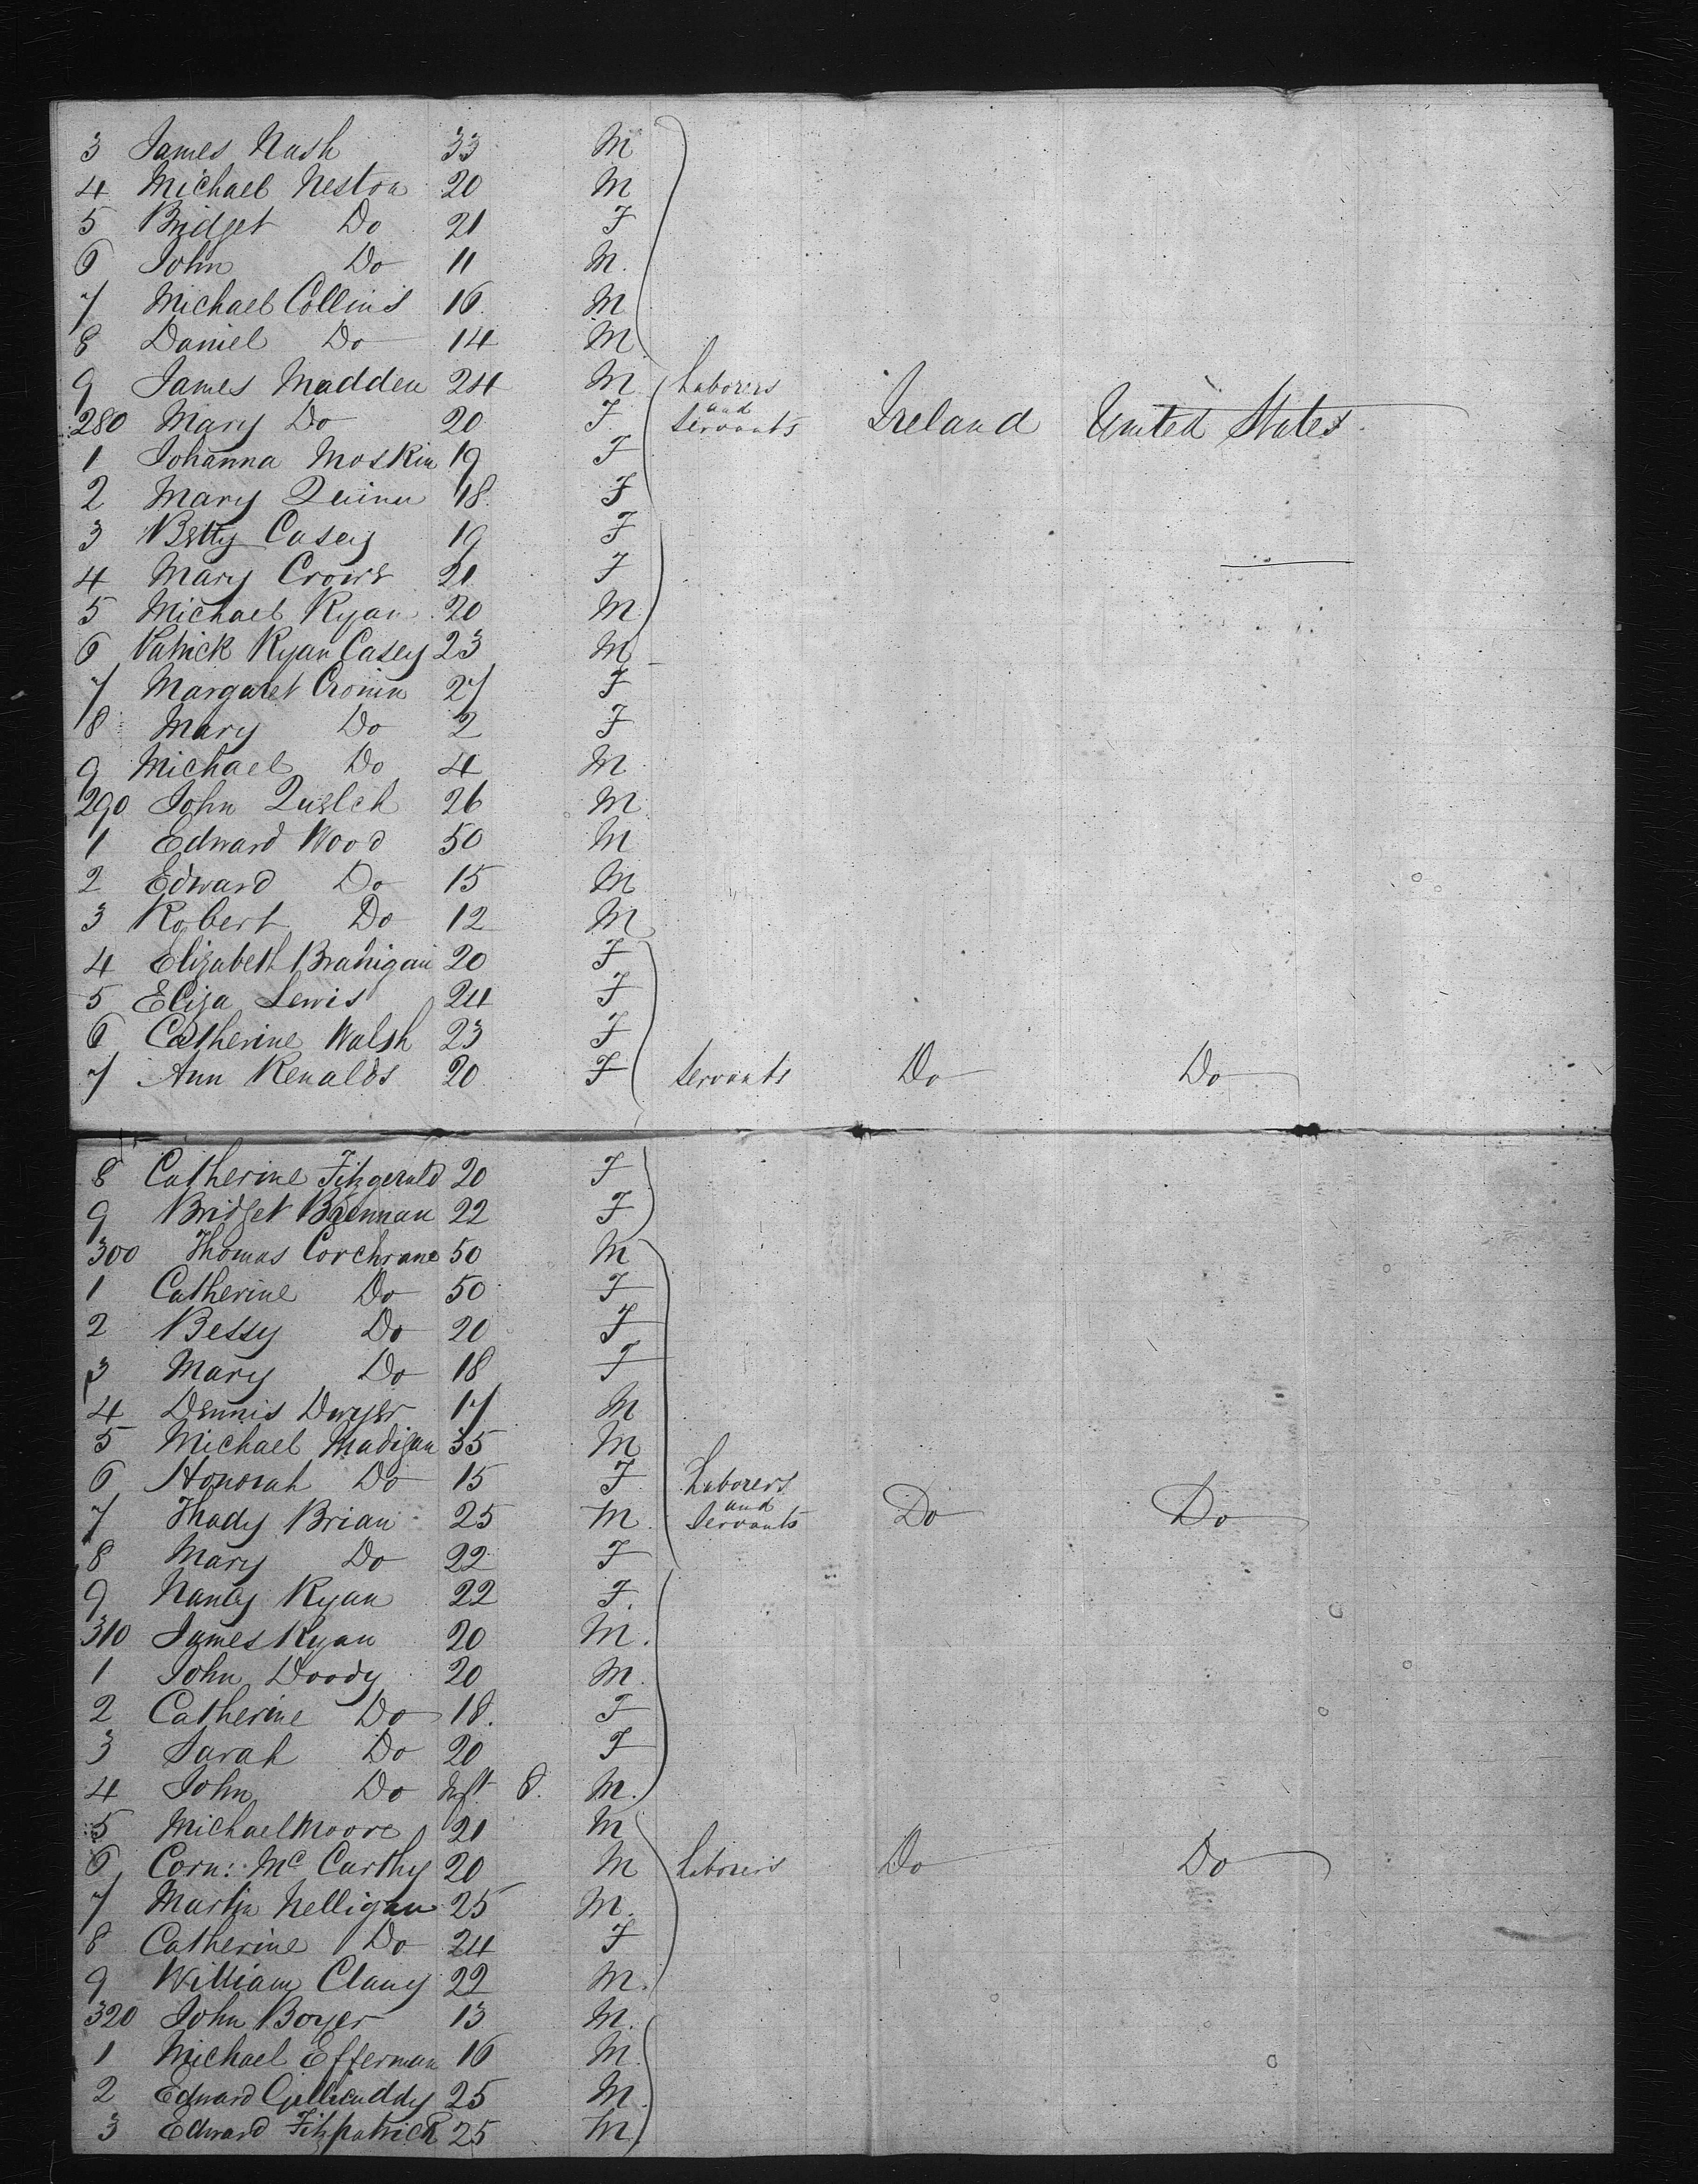 3 James Nash 33 M
4 Michael Neston 20 M
5 Bridget Do 21 F
6 John Do 11 M.
7 Michael Collins 16. M
8 Daniel Do 14 M
9 James Madden 24 M Laborers
and
280 Mary Do 20 F. Servants Ireland United States
1 Johanna Moskin 19 F
2 Mary Quinn 18. F
3 Betty Casey 19 F
4 Mary Crowe 21 F
5 Michael Ryan 20 M
6 Patrick Ryan Casey 23 M
7 Margaret Cronin 27 F
8 Mary Do 2 F
9 Michael Do 4 M
290 John Quelch 26 M
1 Edward Wood 50 M
2 Edward Do 15 M
3 Robert Do 12 M
4 Elizabeth Brahigan 20 F
5 Eliza Lewis 24 F
6 Catherine Walsh 23 F
7 Ann Renalds 20 F Servants Do Do
8 Catherine Fitzgerald 20 F
9 Bridget Brennan 22 F
300 Thomas Corchrane 50 M
1 Catherine Do 50 F
2 Bessy Do 20 F
3 Mary Do 18 F
4 Dennis Dwyer 17 M
5 Michael Madigan 35 M
6 Honorah Do 15 F Laborers
and
7 Thady Brian 25 M. Servants Do Do
8 Mary Do 22 F
9 Nancy Ryan 22 F.
310 James Ryan 20 M.
1 John Doody 20 M.
2 Catherine Do 18. F
3 Sarah Do 20 F
4 John Do Inft. 8. M.
5 Michael Moore 21 M
6 Corn: Mc Carthy 20 M Laborers Do Do
7 Martin Nelligan 25 M.
8 Catherine Do 24 F
9 William Clany 22 M.
320 John Boyer 13 M.
1 Michael Efferman 16 M.
2 Edward Gillicuddy 25 M.
3 Edward Fitzpatrick 25 M.